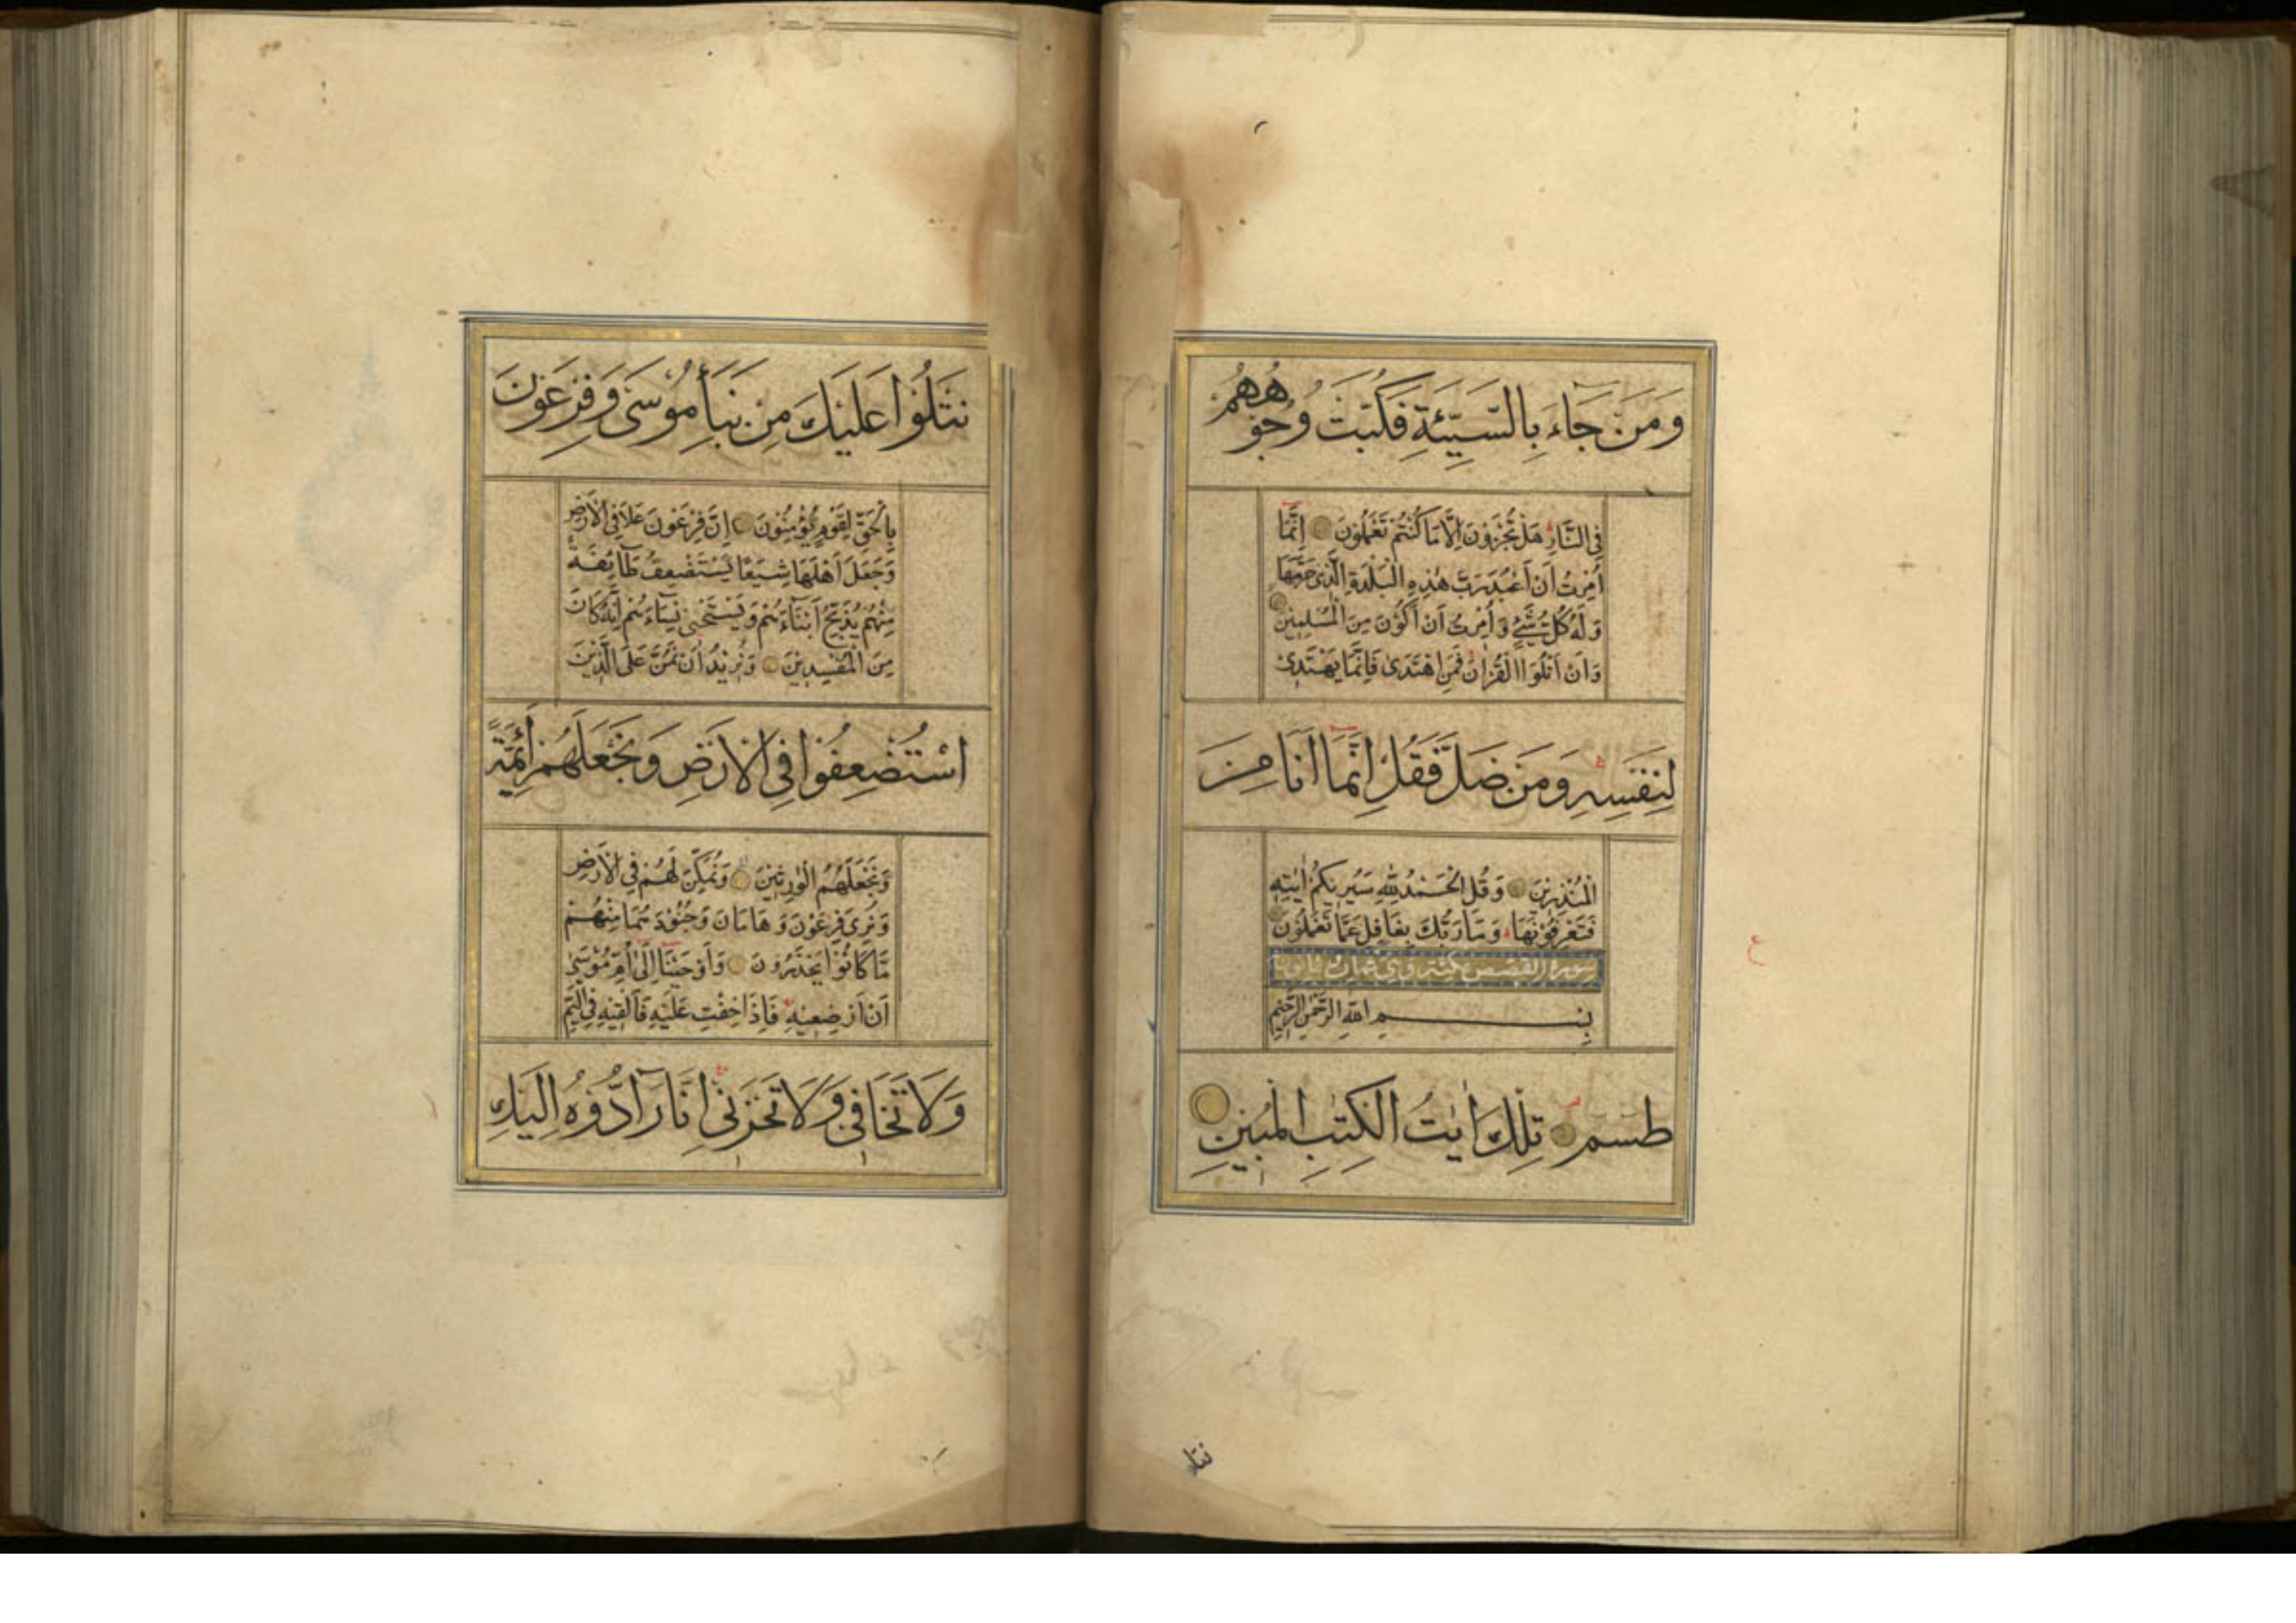 وَمَنْ جَاءَ بِالسَّيِّئَةِ فَكُبَّتْ وُجُوهُهُمْ
فِي النَّارِ هَلْ تُجْزَوْنَ اِلَّا مَا كُنْتُمْ تَعْمَلُونَ اِنَّمَا
اُمِرْتُ اَنْ اَعْبُدَ رَبَّ هٰذِهِ الْبَلْدَةِ الَّذِي حَرَّمَهَا
وَلَهُ كُلُّ شَيْءٍ وَاُمِرْتُ اَنْ اَكُوْنَ مِنَ الْمُسْلِمِيْنَ
وَاَنْ اَتْلُوَا الْقُرْاٰنَ فَمَنِ اهْتَدٰى فَاِنَّمَا يَهْتَدِيْ
لِنَفْسِهِ وَمَنْ ضَلَّ فَقُلْ اِنَّمَا اَنَا مِنَ
الْمُنْذِرِيْنَ وَقُلِ الْحَمْدُ لِلّٰهِ سَيُرِيْكُمْ اٰيٰتِهِ
فَتَعْرِفُوْنَهَا وَمَا رَبُّكَ بِغَافِلٍ عَمَّا تَعْمَلُوْنَ
سورة القصص مكية وهي ثمان
بِسْمِ اللّٰهِ الرَّحْمٰنِ الرَّحِيْمِ
طٰسم تِلْكَ اٰيٰتُ الْكِتٰبِ الْمُبِيْنِ
نتلو
نَتْلُوْا عَلَيْكَ مِنْ نَبَأِ مُوْسٰى وَفِرْعَوْنَ
بِالْحَقِّ لِقَوْمٍ يُؤْمِنُوْنَ اِنَّ فِرْعَوْنَ عَلَا فِي الْاَرْضِ
وَجَعَلَ اَهْلَهَا شِيَعًا يَسْتَضْعِفُ طَآئِفَةً
مِنْهُمْ يُذَبِّحُ اَبْنَآءَهُمْ وَيَسْتَحْيٖ نِسَآءَهُمْ اِنَّهُ كَانَ
مِنَ الْمُفْسِدِيْنَ وَنُرِيْدُ اَنْ نَمُنَّ عَلَى الَّذِيْنَ
اسْتُضْعِفُوْا فِي الْاَرْضِ وَنَجْعَلَهُمْ اَئِمَّةً
وَنَجْعَلَهُمُ الْوٰرِثِيْنَ وَنُمَكِّنَ لَهُمْ فِي الْاَرْضِ
وَنُرِيَ فِرْعَوْنَ وَهَامَانَ وَجُنُوْدَهُمَا مِنْهُمْ
مَّا كَانُوْا يَحْذَرُوْنَ وَاَوْحَيْنَا اِلٰى اُمِّ مُوْسٰى
اَنْ اَرْضِعِيْهِ فَاِذَا خِفْتِ عَلَيْهِ فَاَلْقِيْهِ فِي الْيَمِّ
وَلَا تَخَافِيْ وَلَا تَحْزَنِيْ اِنَّا رَآدُّوْهُ اِلَيْكِ